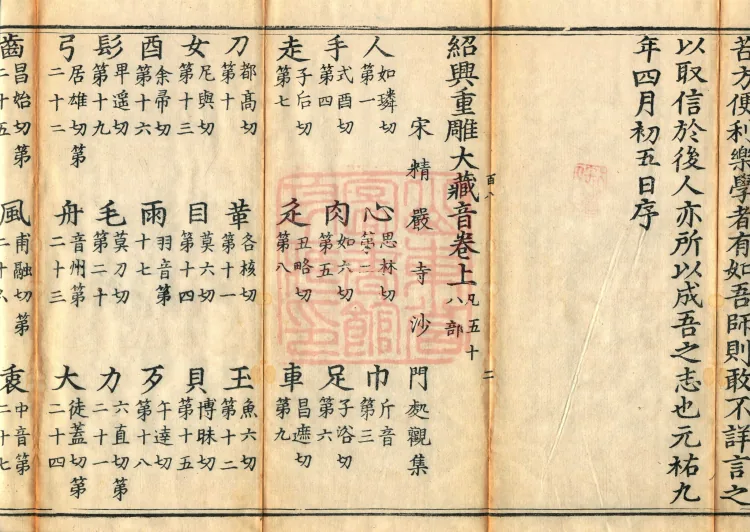 苦方便利樂學者有如吾師則敢不詳言之
以取信於後人亦所以成吾之志也元祐九
年四月初五日序
百八 二
紹興重雕大藏音卷上凡五十八部
宋精嚴寺沙門處觀集
人如璘切第一 心思林切第二 巾斤音第三
手式酉切第四 肉如六切第五 足子浴切第六
走子后切第七 辵丑略切第八 車昌遮切第九
刀都高切第十 革各核切第十一 玉魚六切第十二
女尼與切第十三 目莫六切第十四 貝博昧切第十五
酉余帚切第十六 雨羽音第十七 歹午達切第十八
髟畢遥切第十九 毛莫刀切第二十 力六直切第二十一
弓居雄切第二十二 舟音州第二十三 大徒蓋切第二十四
齒昌始切第二十五 風甫融切第二十六 衷中音第二十七